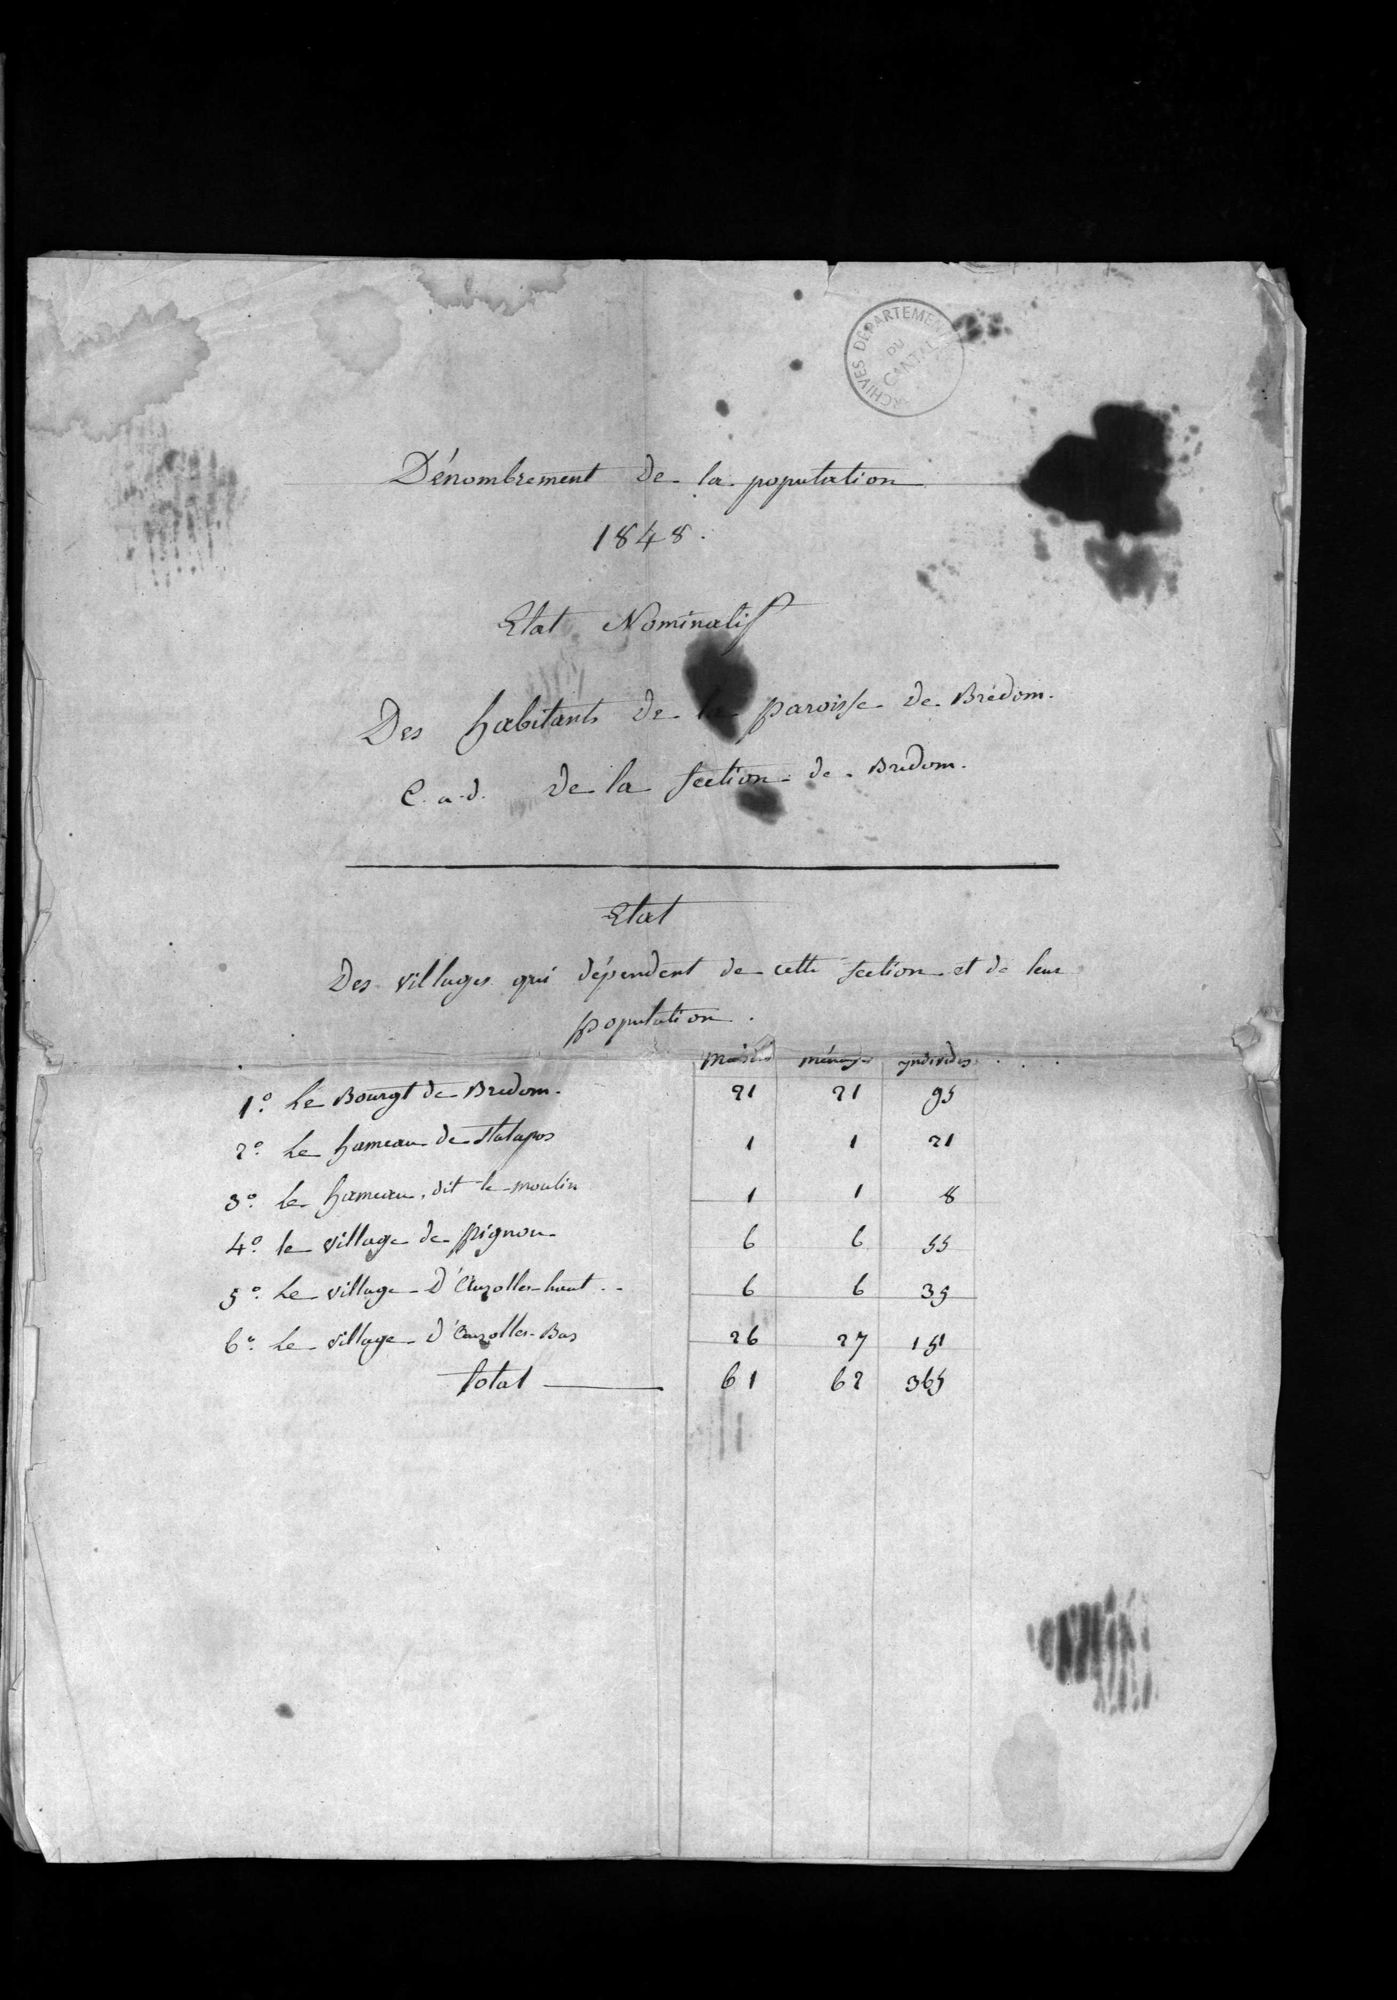 ARCHIVES DÉPARTEMEN
DU
CANTAL
Dénombrement de la population
1848.
Etat Nominatif
Des habitants de la paroisse de Brédom.
C. a. d. de la section de Bredom.
Etat
Des villages qui dépendent de cette section et de leur
population.
maisons ménages yndividus
1º. Le Bourgt de Bredom. 21 21 95
2º. Le hameau de Stalapos 1 1 21
3º. Le hameau, dit le moulin 1 1 8
4º. le village de pignou 6 6 55
5º. Le village D'Auzolles-haut 6 6 35
6º. Le village d'auzolles-Bas 26 27 151
Total 61 62 365